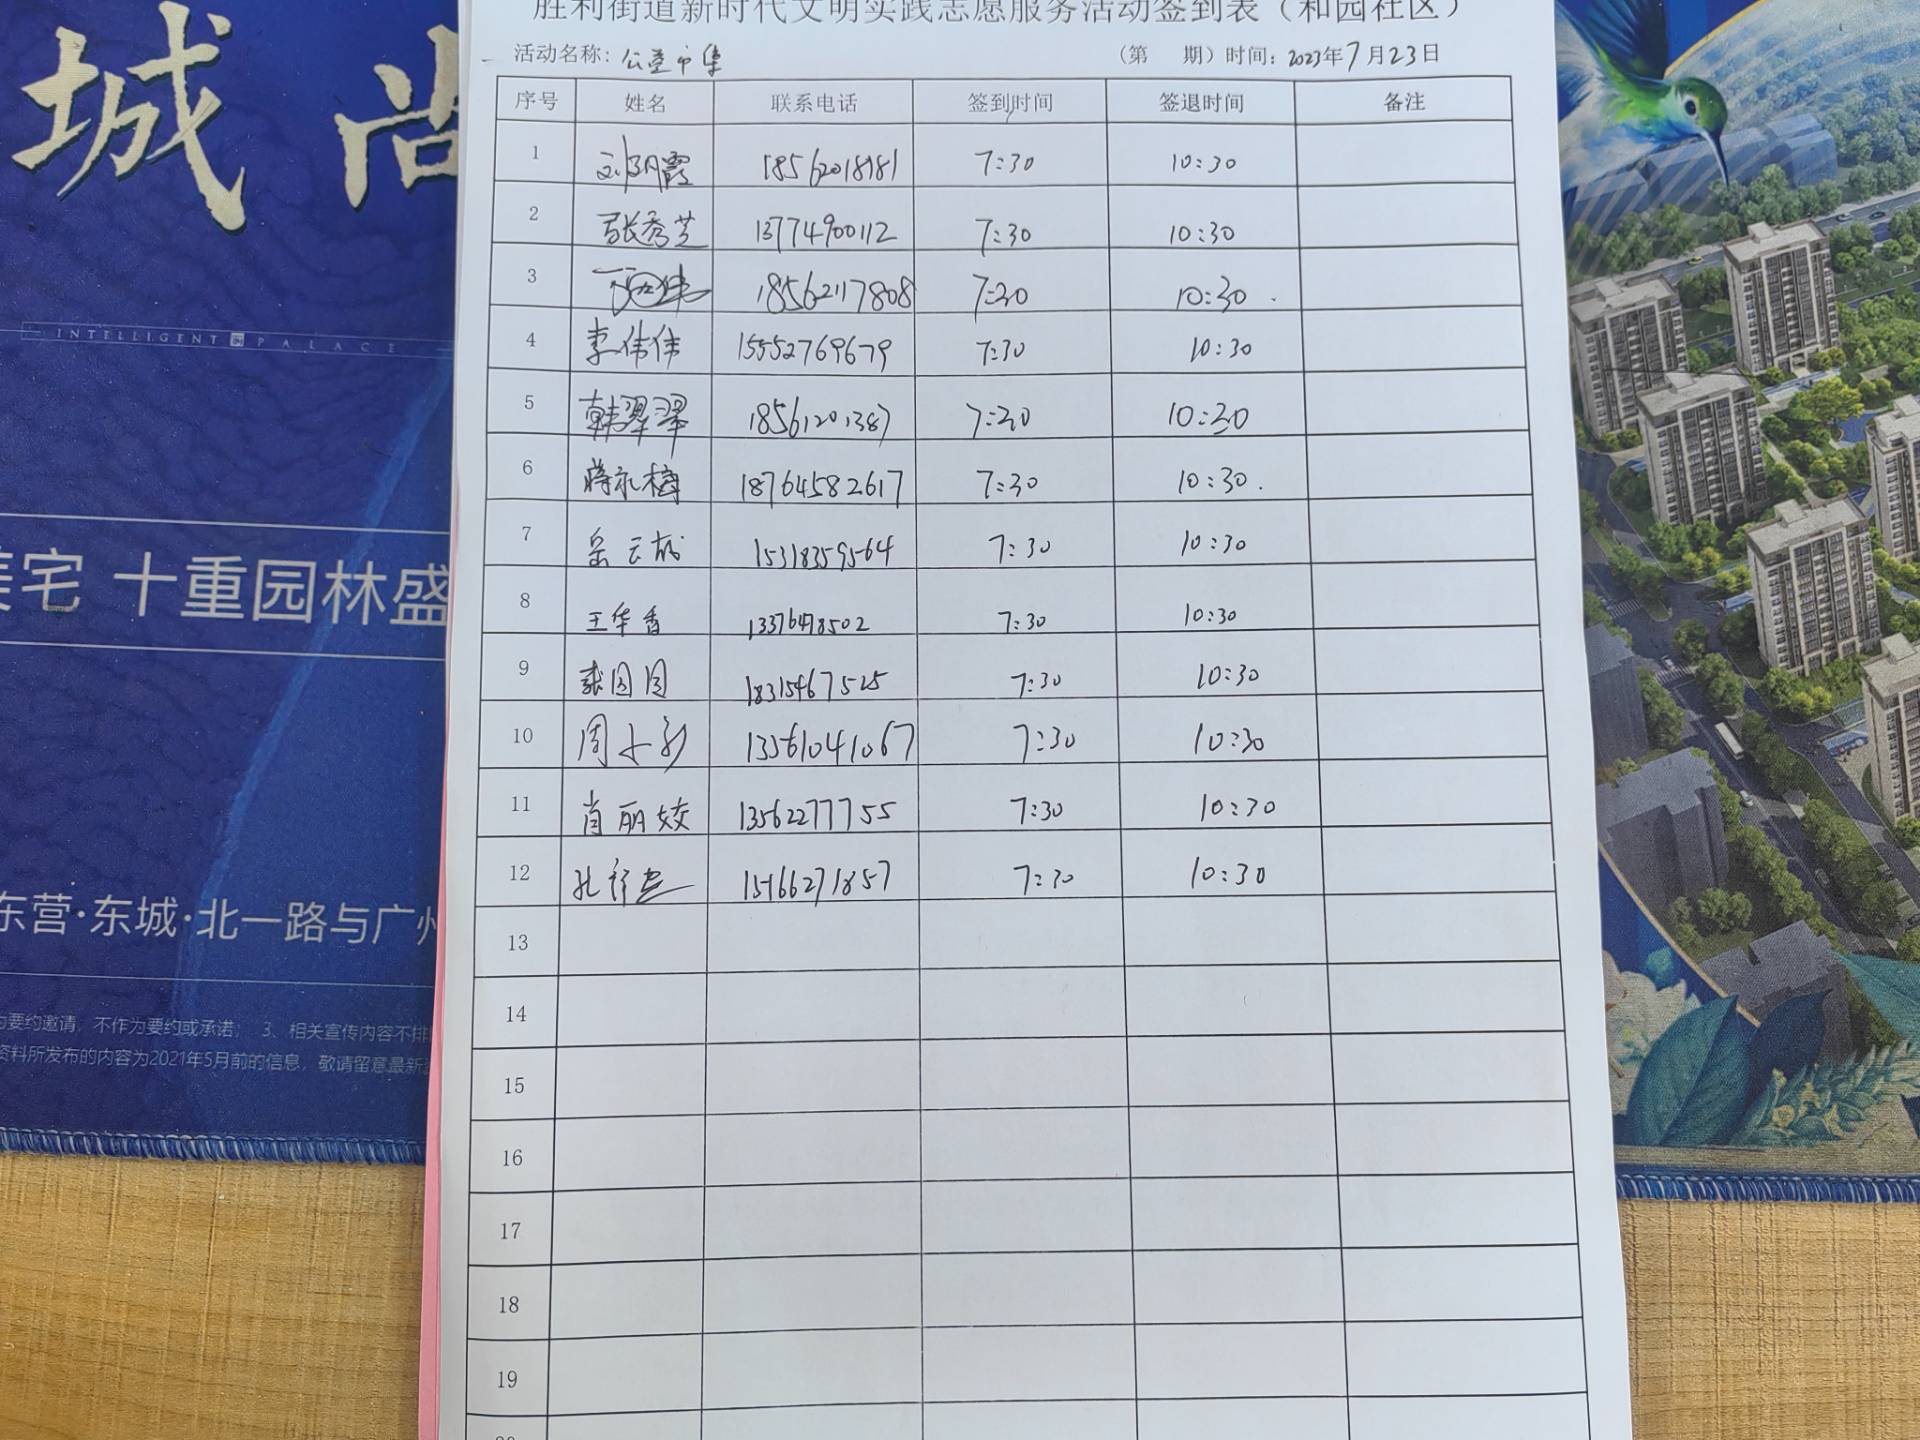 胜利街道新时代文明实践志愿服务活动签到表（和园社区）
活动名称：公益市集 （第 期）时间：2023年7月23日
序号 姓名 联系电话 签到时间 签退时间 备注
1 刘明霞 18562018181 7:30 10:30
2 张秀芝 13774900112 7:30 10:30
3 18562117808 7:30 10:30
4 李伟伟 15552769679 7:30 10:30
5 韩翠翠 18561201387 7:30 10:30
6 蒋永梅 18764582617 7:30 10:30
7 岳云 15318359564 7:30 10:30
8 王华香 13376478502 7:30 10:30
9 张园园 18315467525 7:30 10:30
10 周小彩 13561041067 7:30 10:30
11 肖丽姣 13562277755 7:30 10:30
12 孔 15166271857 7:30 10:30
13
14
15
16
17
18
19
城尚
INTELLIGENT PALACE
美宅 十重园林盛
东营·东城·北一路与广州
为要约邀请，不作为要约或承诺； 3、相关宣传内容不排
资料所发布的内容为2021年5月前的信息，敬请留意最新